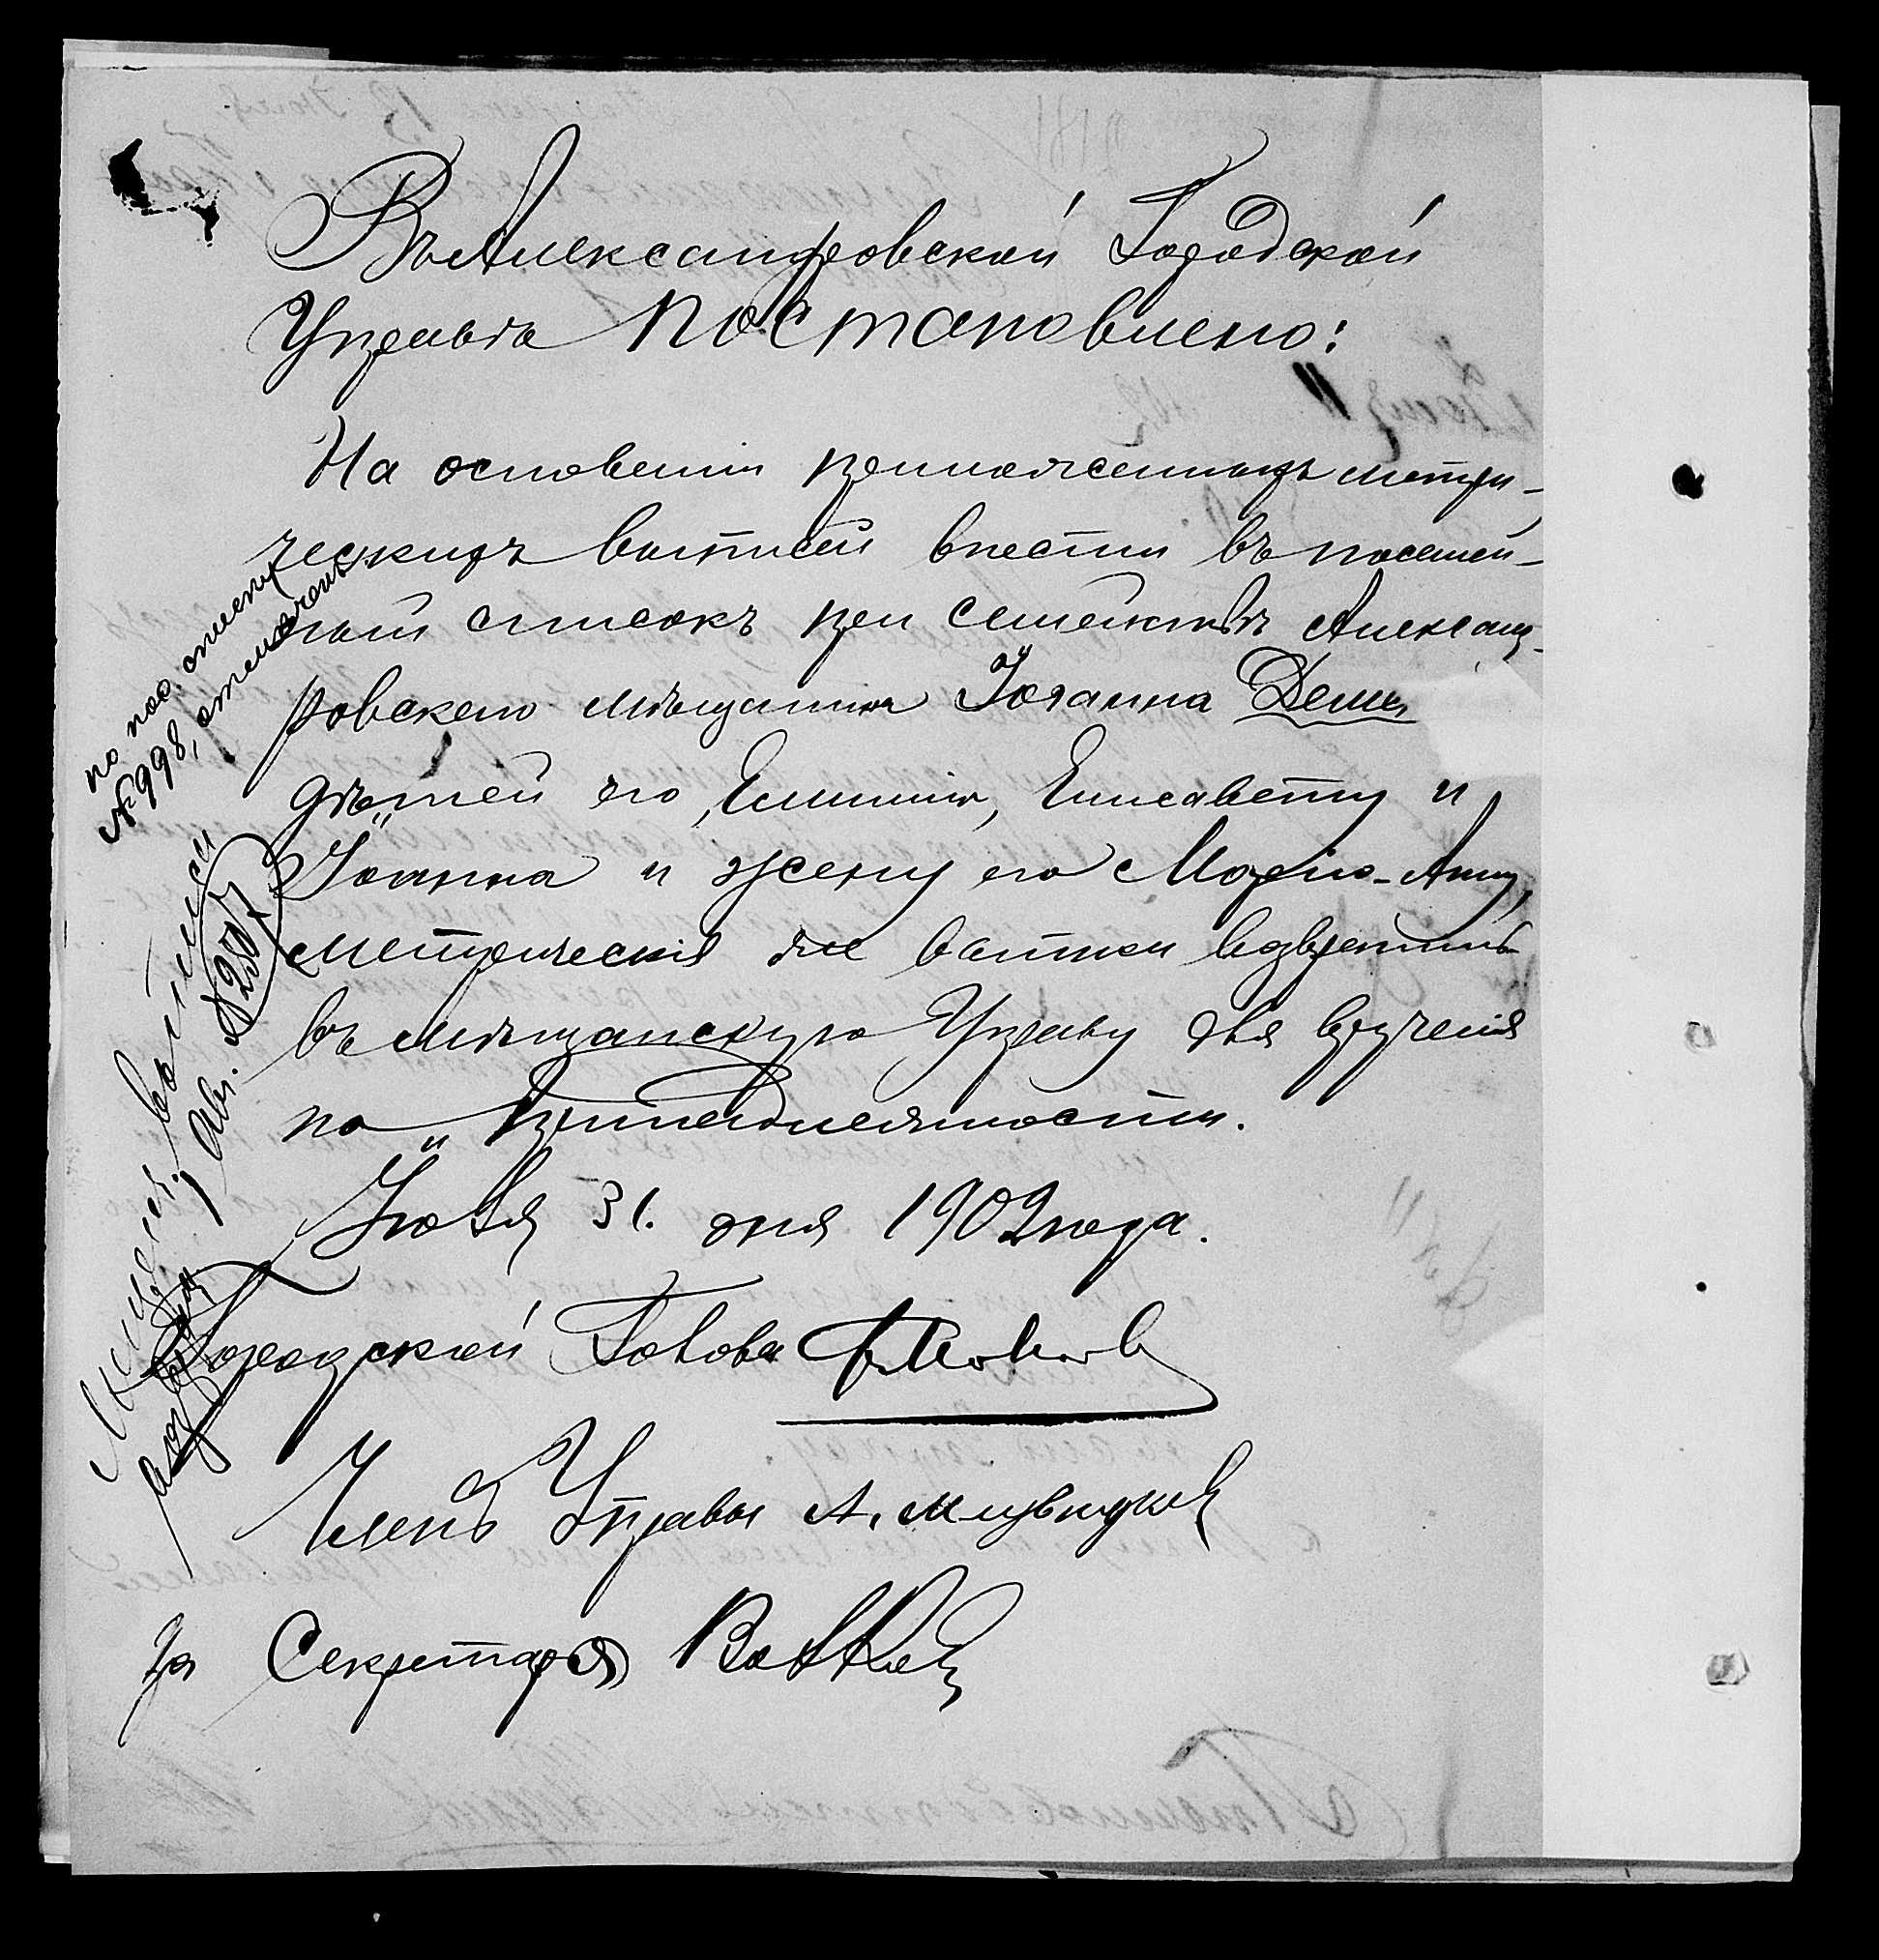 Въ Александровской Городской
Управѣ постановлено:
На основаніи приложенныхъ метри-
ческихъ выписей внести въ посемей-
ный списокъ при семействѣ Александ-
ровскаго мѣщанина Іоганна
дѣтей его, Емилію, Елисавету и
Іоанна и жену его Марію-Анну,
метрическія же выписи возвратить
въ мѣщанскую Управу для врученія
по принадлежности.
Іюля 31. дня 1902 года.
Городской Голова
Членъ Управы А.
За Секретаря
по пос. списку
№ 998, отмѣчено
выписи
Авг. № 2507